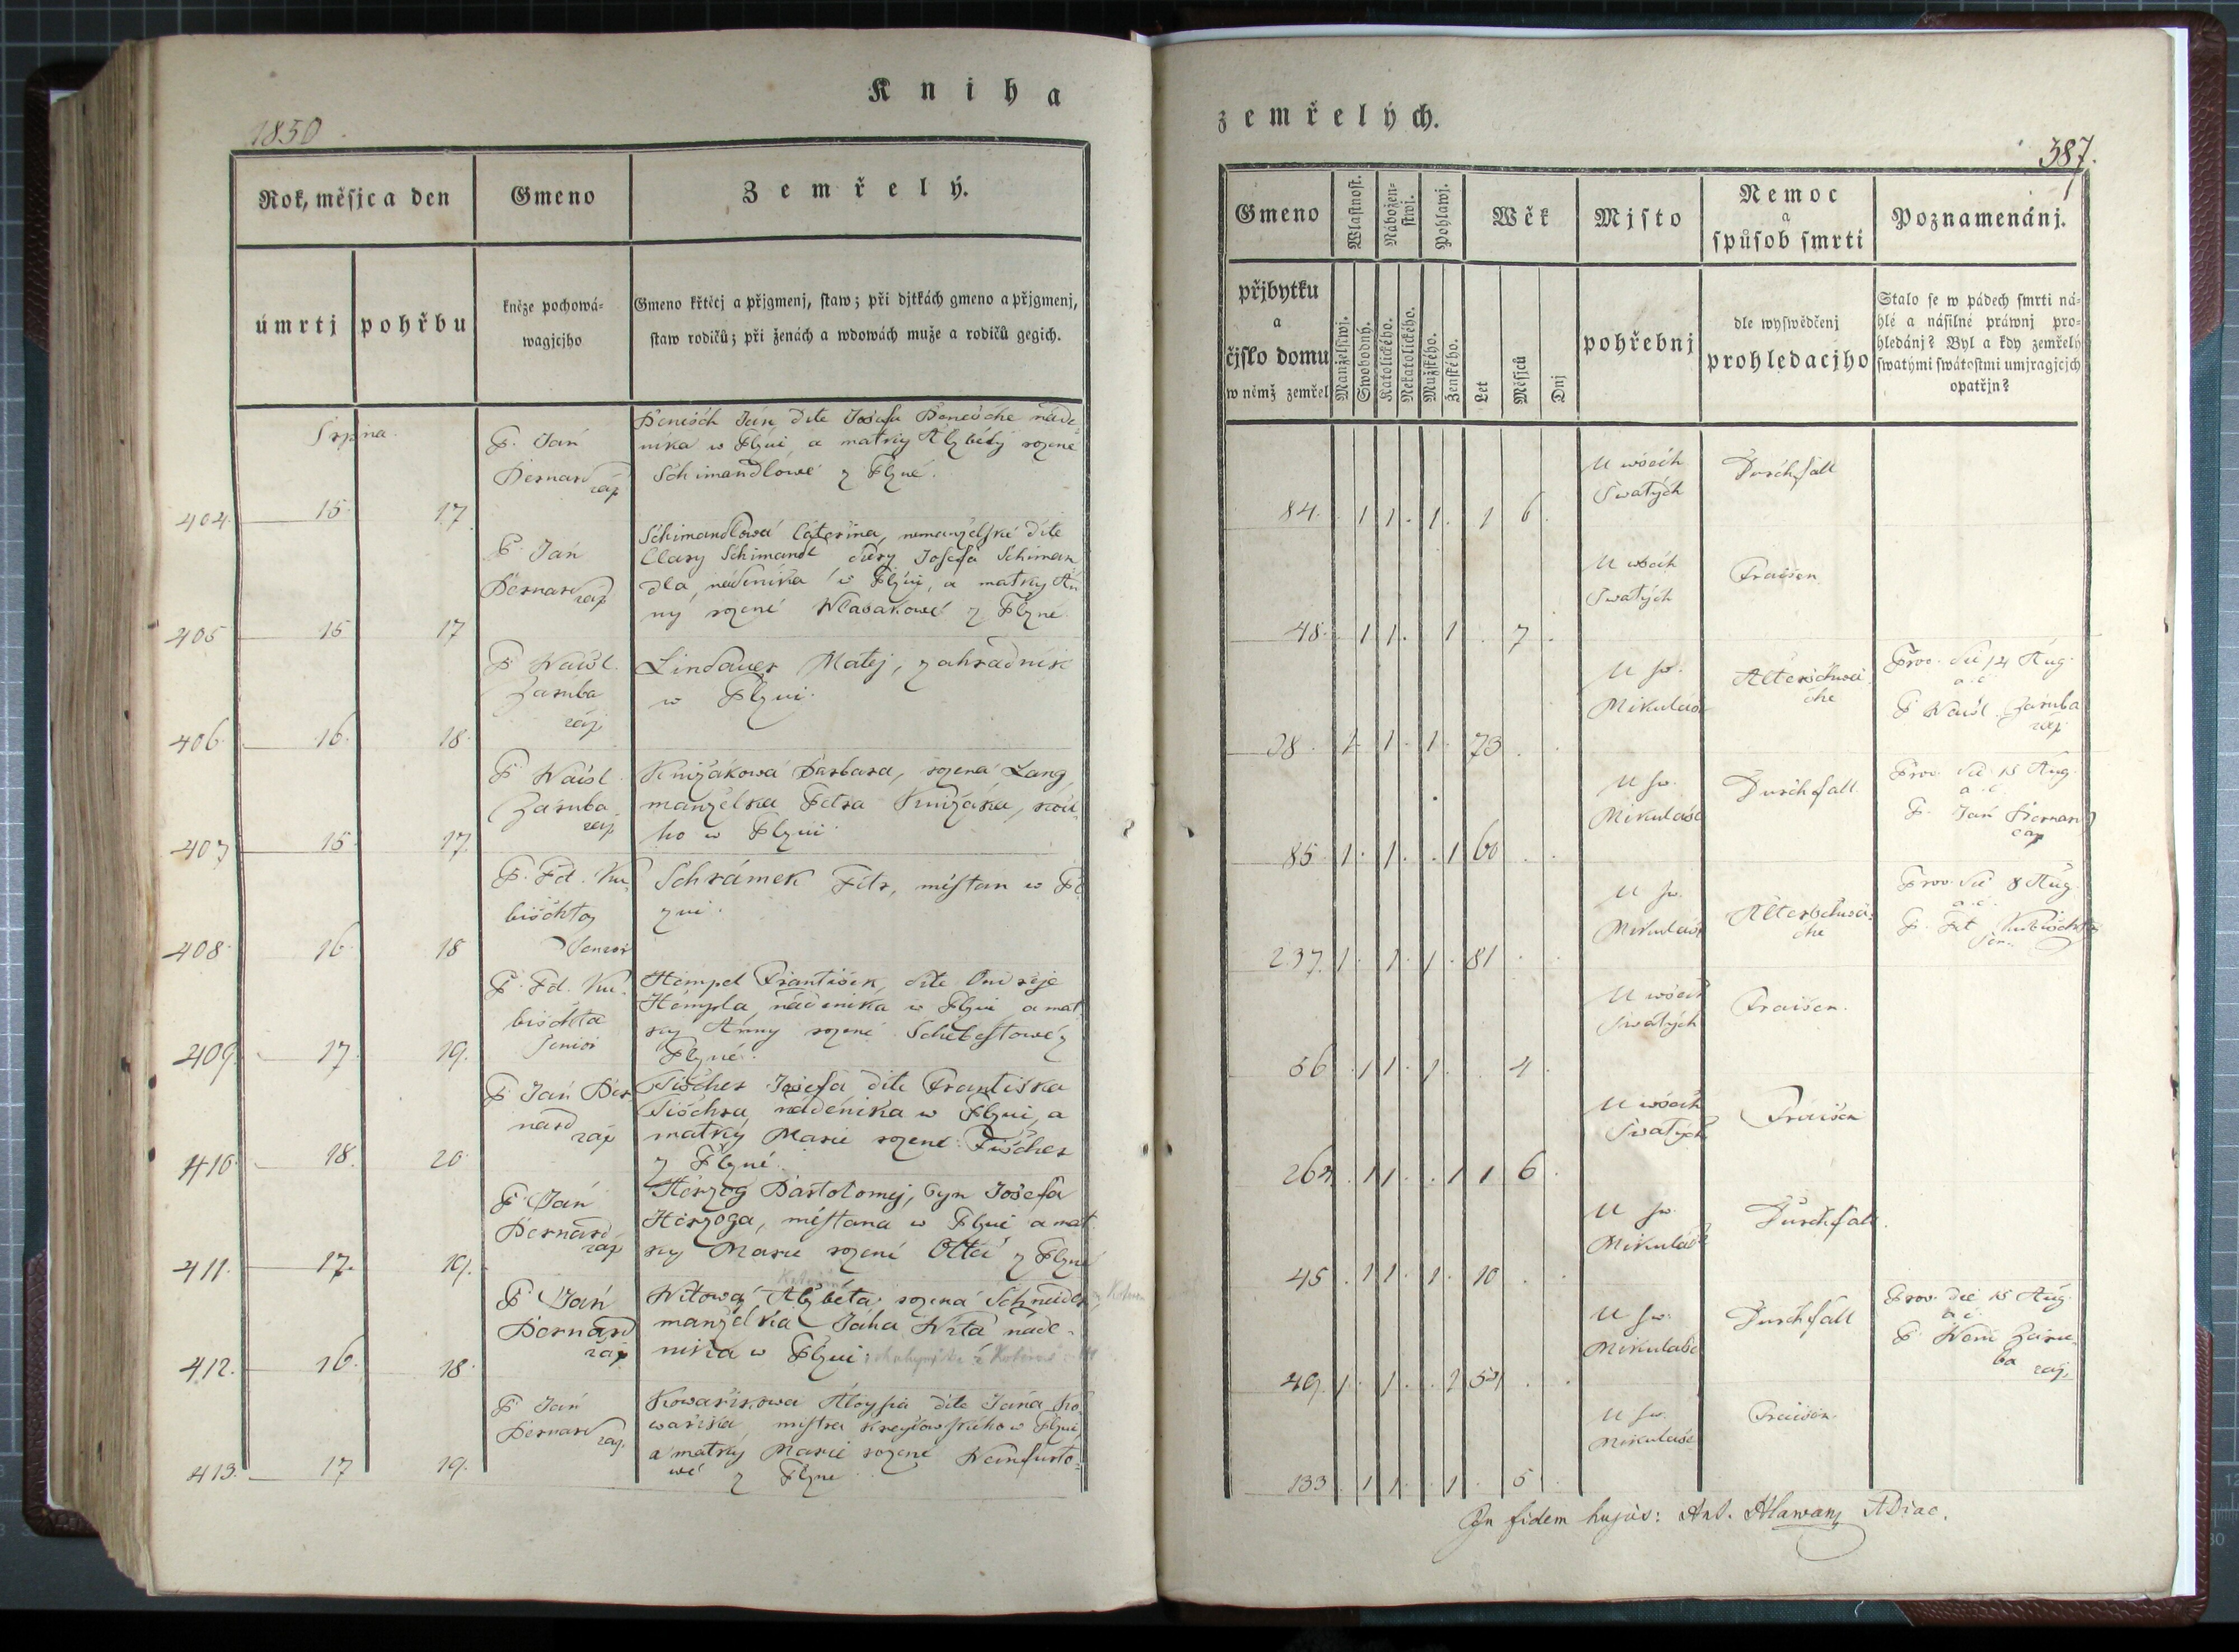 Kniha
1850
Rok, měsjc a den
Gmeno
Zemřelý.
úmrtj
pohřbu
kněze pochowá-
wagjcjho
Gmeno křtěcj a přjgmenj, staw; při djtkách gmeno a přjgmenj,
staw rodičů; při ženách a wdowách muže a rodičů gegich.
Srpna.
404. 15. 17.
P. Jan
Bernard
cap
Benisch Jan, dite Josefa Benische nade-
nika w Plzni a matky Alzběty rozené
Schimandlowé z Plzně.
405 15 17
P. Jan
Bernard cap
Schimandlowá Caterina, nemanzelské dite
Clary Schimandl dcery Josefa Schiman
dla, nádenika w Plzni, a matky An
ny rozené Wlasakowé z Plzně
406. 16. 18.
P. Wácsl.
Zaruba
cap
Lindauer Matej, zahradnik
w Plzni.
407 15. 17.
P. Wácsl.
Zaruba
cap
Knižákowá Barbara, rozená Lang,
manželka Petra Knižáka,
ho w Plzni.
408. 16. 18
P. Fd. Ku-
bischta
Senior
Schrámek Petr, mistan w Pl
zni.
409. 17. 19.
P. Fd. Ku-
bischta
Senior
Hempel Frantisek, dite Ondreje
Hempla, nádenika w Plzni a mat
ky Anny rozené Schebestowé z
Plzně.
410. 18. 20
P. Jan Ber
nard
cap
Tischer Josefa dite Frantiska
Tischra, nádenika w Plzni, a
matky Marie rozené Fischer
z Plzně.
411. 17. 19.
P. Jan
Bernard
cap
Herzog Bartolomej, syn Josefa
Herzoga, mistana w Plzni a mat
ky Marie rozené z Plzně
412. 16. 18.
P. Jan
Bernard
cap
Witowá, Alzběta rozená Schneider
manželka Jána Wita náde-
nika w Plzni
413. 17 19.
P. Jan
Bernard cap.
Kowarikowa Aloysia dite Jana Ko
warika, mistra kregčowského w Plzni,
a matky Marie rozené Weinfurto-
wé z Plzně
zemřelých.
387.
Gmeno
Wlastnost.
Nábožen-
stwj.
Pohlawj.
Wěk
Mjsto
Nemoc
a
spůsob smrti
Poznamenánj.
přjbytku
a
čjslo domu
w němž zemřel
Manželstwj.
Swobodný.
Katolického.
Nekatolického.
Mužského.
Ženského.
Let
Měsjců
Dnj
pohřebnj
dle wyswědčenj
prohledacjho
Stalo se w pádech smrti ná-
hlé a násilné práwnj pro-
hledánj? Byl a kdy zemřelý
swatými swátostmi umjragjcjch
opatřjn?
84. 1 1. 1. 1 6.
U wsech
Swatých
Durchfall
48. 1 1. 1 . 7 .
U wsech
Swatých
Fraisen
28. 1 1. 1. 73 . .
U sw.
Mikulásse
Alterschwä
che
Prov. die 14 Aug.
a. c.
P Wácsl. Zaruba
cap
85. 1. 1. . 1 60 . .
U sw.
Mikulásse
Durchfall
Prov. die 15 Aug.
a. c.
P. Jan Bernard
cap
237. 1. 1. 1. 81 . .
U sw.
Mikulásse
Alterschwä-
che
Prov. die 8 Aug.
a. c.
P. Fd Kubischta
Sen.
56 . 1 1. 1. . 4 .
U wsech
Swatých
Fraisen.
1 1. . 1 1 6 .
U wsech
Swatých
Fraisen
45 . 1 1. 1. 10 . .
U sw.
Mikulásse
Durchfall.
49. 1. 1. . 1
U sw.
Mikulásse
Durchfall
Prov. die 15 Aug.
a. c.
P. Zaru-
ba cap.
133 . 1 1. . 1 . 5 .
U sw.
Mikulásse
Fraisen.
In fidem hujus: Ant. Hlawan ADiac.